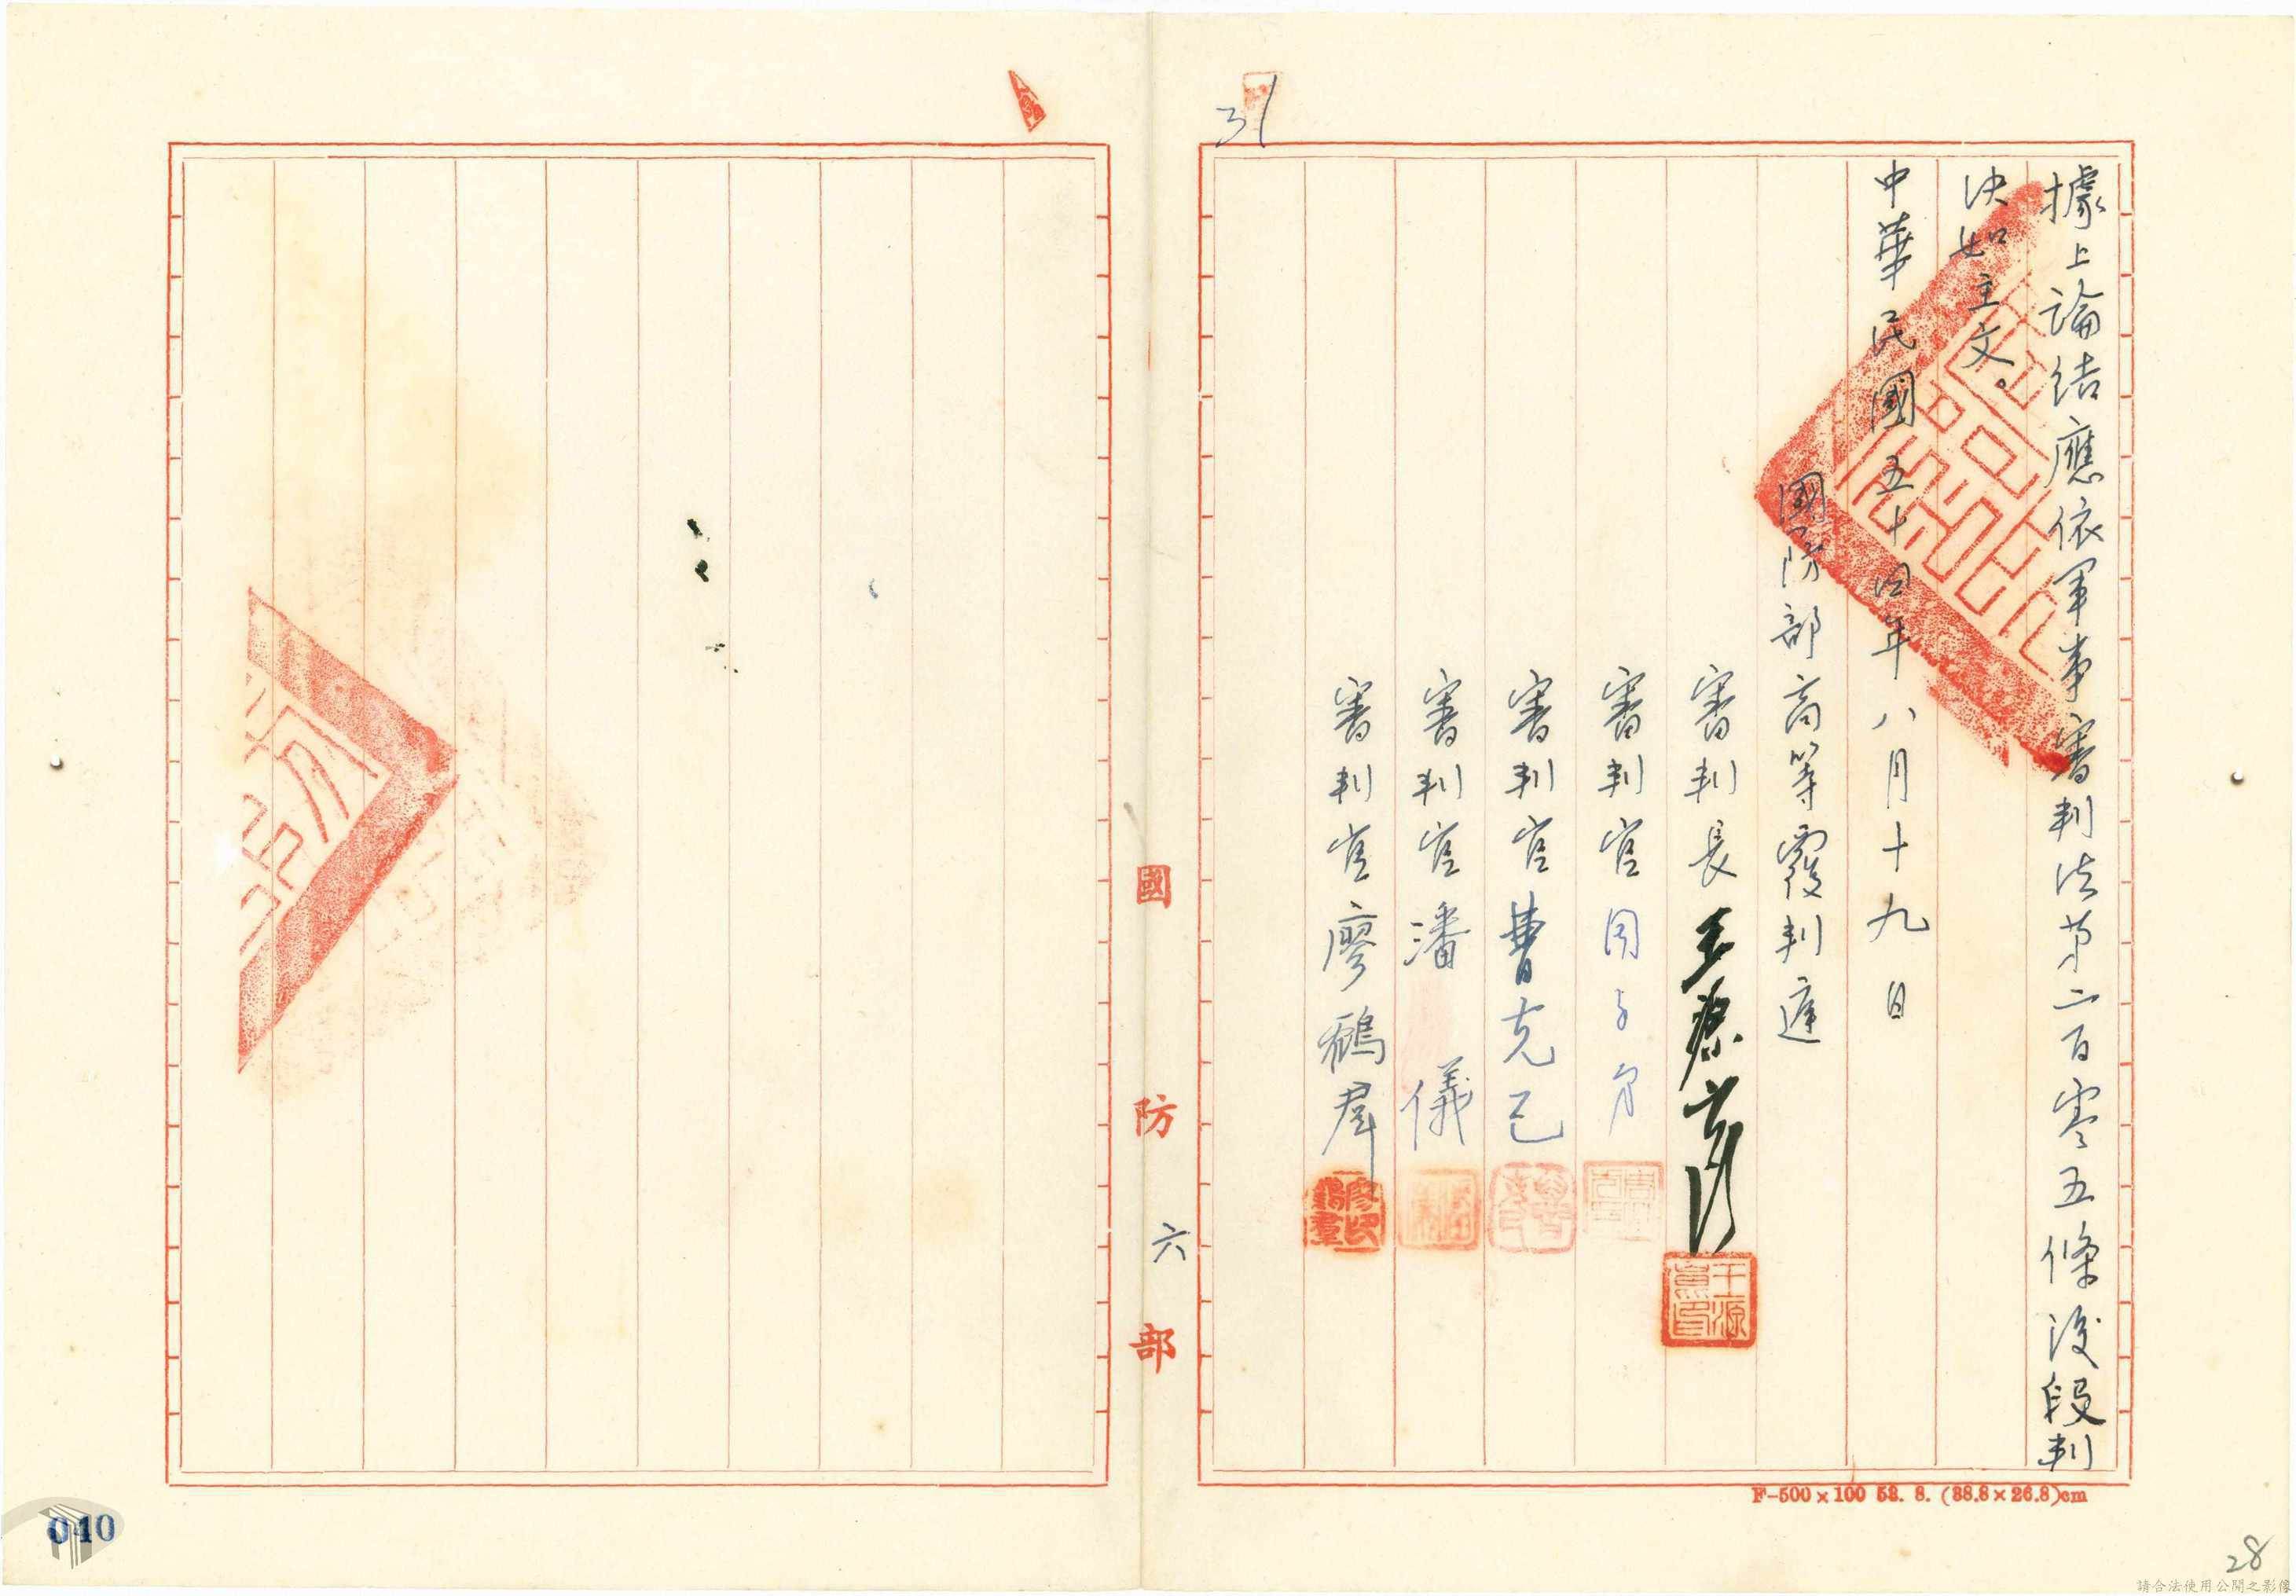 31
據上論結應依軍事審判法第二百零五條後段判
決如主文。
中華民國五十四年八月十九日
國防部高等覆判庭
審判長王
王源
印
審判官周
審判官曹克己
審判官潘 儀
審判官廖鶴群
廖印
鶴羣
國防部
六
F-500×100 53. 8. (38.8×26.8)cm
040
28
請合法使用公開之影像